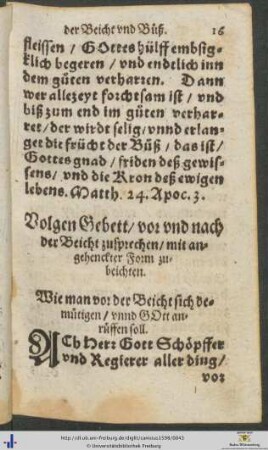 der Beicht vnd Büß. 16
fleissen / GOttes hülff embsig-
klich begeren / vnd endtlich inn
dem güten verharren. Dann
wer allezeyt forchtsam ist / vnd
biß zum end im güten verhar-
ret / der wirdt selig / vnnd erlan-
get die frücht der Büß / das ist /
Gottes gnad / friden deß gewis-
sens / vnd die Kron deß ewigen
lebens. Matth. 24. Apoc. 3.
Volgen Gebett / vor vnd nach
der Beicht zusprechen / mit an-
gehenckter Form zu-
beichten.
Wie man vor der Beicht sich de-
mütigen / vnnd GOtt an-
rüffen soll.
ACh Herr Gott Schöpffer
vnd Regierer aller ding /
vor
http://dl.ub.uni-freiburg.de/diglit/canisius1596/0043
© Universitätsbibliothek Freiburg
Baden-Württemberg